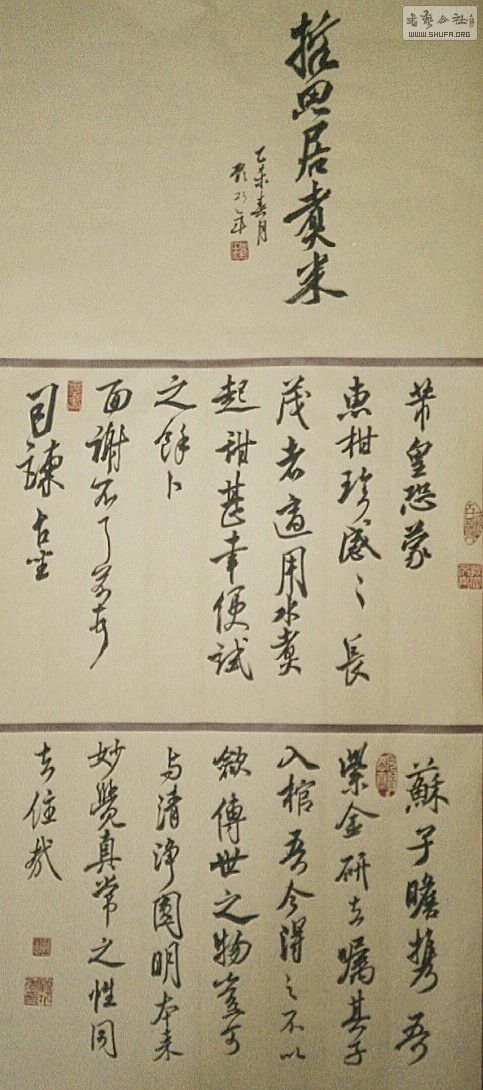 書藝公社
WWW.SHUFA.ORG
哲思居煮米
乙未春月
芾皇恐蒙
惠柑珍感〻長
茂者適用水煮
起甜甚幸便試
之餘卜
面謝不了芾頓首
司諫台坐
蘇子瞻攜吾
紫金研去囑其子
入棺吾今得之不以
斂傳世之物豈可
与清淨圓明本來
妙覺真常之性同
去住哉